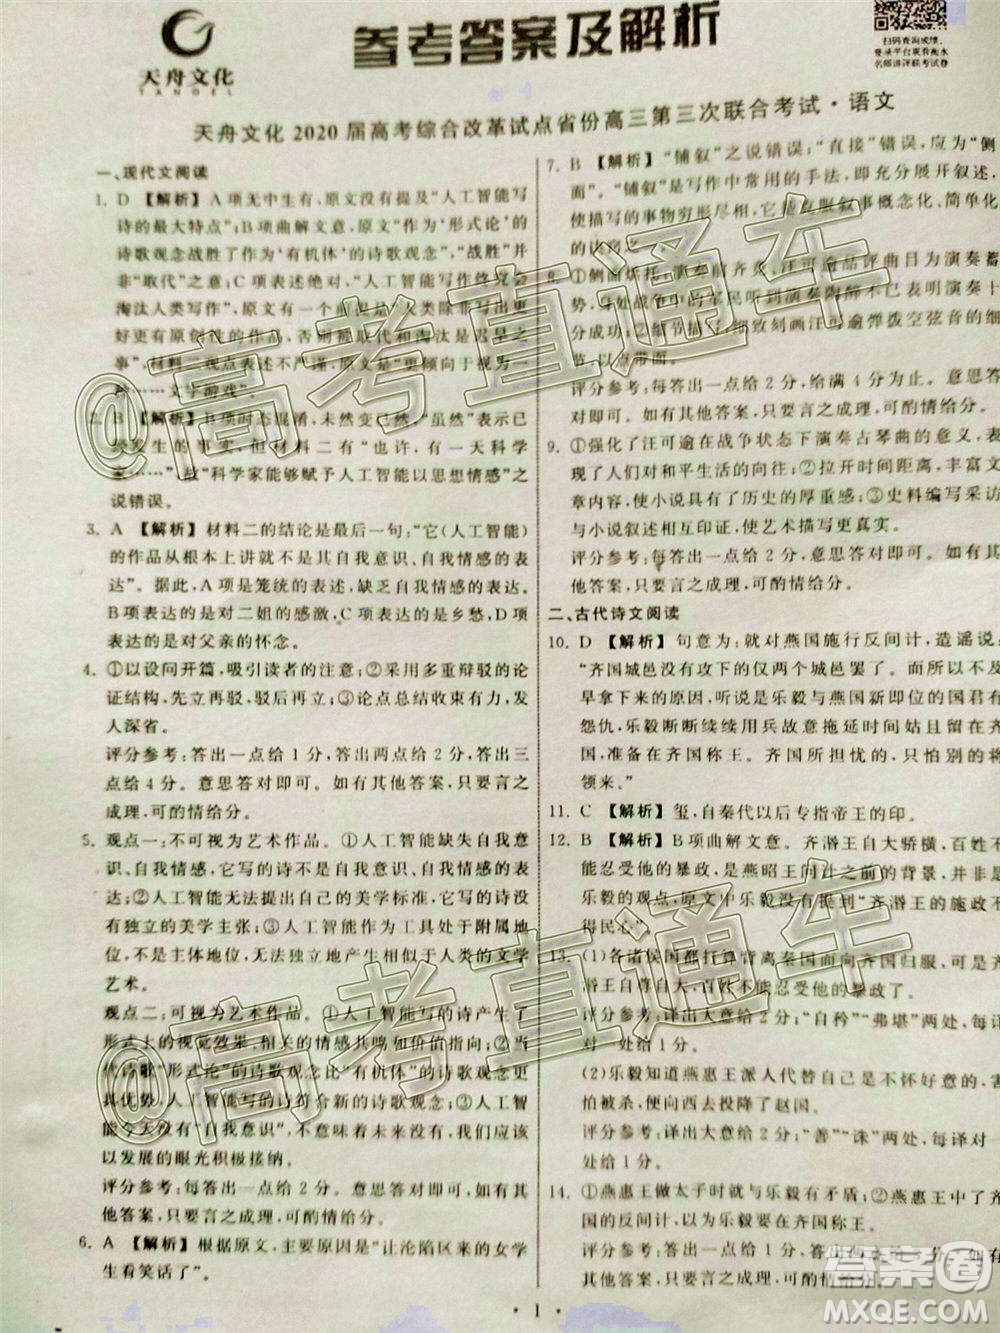 天舟文化
TANGEL
参考答案及解析
扫码查询成绩,
登录平台观看衡水
名师讲评联考试卷
天舟文化2020届高考综合改革试点省份高三第三次联合考试·语文
一、现代文阅读
1. D 【解析】A项无中生有,原文没有提及“人工智能写
诗的最大特点”;B项曲解文意,原文“作为‘形式论’的
诗歌观念战胜了作为‘有机体’的诗歌观念”,“战胜”并
非“取代”之意;C项表达绝对,“人工智能写作终究会
淘汰人类写作”,原文有一个前提“除非人类能够写出
更好更有原创性的作品,否则被取代只是迟早之
事”,材料一观点表述不严谨,原文“更倾向于视为一
种……文字游戏”。
2. B 【解析】B项时态混淆,未然变已然,“虽然”表示已
发生的事实,材料二有“也许,有一天科学
家……”,故“科学家能够赋予人工智能以思想情感”之
说错误。
3. A 【解析】材料二的结论是最后一句:“它(人工智能)
的作品从根本上讲就不是其自我意识、自我情感的表
达”。据此,A项是笼统的表述,缺乏自我情感的表达。
B项表达的是对二姐的感激,C项表达的是乡愁,D项
表达的是对父亲的怀念。
4. ①以设问开篇,吸引读者的注意;②采用多重辩驳的论
证结构,先立再驳,驳后再立;③论点总结收束有力,发
人深省。
评分参考:答出一点给1分,答出两点给2分,答出三
点给4分。意思答对即可。如有其他答案,只要言之
成理,可酌情给分。
5. 观点一:不可视为艺术作品。①人工智能缺失自我意
识、自我情感,它写的诗只是没有自我情感的表
达;②人工智能无法提出自己的美学标准,或代表一
定的美学主张;③人工智能作为工具处于附属地
位,不具主体地位,无法独立地产生相似于人类的文学
艺术。
观点二:可视为艺术作品。①人工智能写的诗产生了
诗的视觉效果,激发读者的情感共鸣和思考;②当
代诗歌“形式论”的诗歌观念比“有机体”的诗歌观念更
具优势,人工智能写的诗符合新的诗歌观念;③人工智
能写诗没有“自我意识”,不意味着未来没有,我们应该
以发展的眼光积极接纳。
评分参考:每答出一点给2分,意思答对即可。如有
其他答案,只要言之成理,可酌情给分。
6. A 【解析】根据原文,主要原因是“让沦陷区来的女学
生看笑话了”。
7. B 【解析】“铺叙”之说错误;“直接”错误,应为“侧
面”。“铺叙”是写作中常用的手法,即充分叙述,
使描写的事物穷形尽相,避免叙事概念化、简单化
的诀窍。
8. ①侧面烘托:演奏前齐
评分参考:每答出一点给2分,答满6分为止。意思答
对即可。如有其他答案,只要言之成理,可酌情给分。
9. ①强化了汪可逾在战争状态下演奏古琴曲的意义,表
现了人们对和平生活的向往;②拉开时间距离,丰富文
章内容,使小说具有了历史的厚重感;③史料编写采访
与小说叙述相互印证,使艺术上更真实。
评分参考:每答出一点给2分,意思答对即可。如有其
他答案,只要言之成理,可酌情给分。
二、古代诗文阅读
10. D 【解析】句意为:就对燕国施行反间计,造谣说:
“齐国城邑没有攻下的仅两个城邑罢了。而所以不及
早拿下来的原因,听说是乐毅与燕国新即位的国君有
怨仇,乐毅断断续续用兵故意拖延时间姑且留在齐
国,准备在齐国称王。齐国所担忧的,只怕别的将
领来。”
11. C 【解析】玺,自秦代以后专指帝王的印。
12. B 【解析】B项曲解文意。齐湣王自大骄横,百姓不
能忍受他的暴政,是燕昭王问计的背景,并非是乐
毅的观点。原文中乐毅没有批判“齐湣王的施政不
得民心”。
13. (1)各诸侯国都打算背离秦国而向齐国归服,可是齐
湣王自尊自大,百姓不能忍受他的暴政了。
评分参考:译出大意给2分;“自矜”“弗堪”两处,每
译对一处给1分。
(2)乐毅知道燕惠王派人代替自己是不怀好意的,害
怕被杀,便向西去投降了赵国。
评分参考:译出大意给2分;“善”“诛”两处,每译对一
处给1分。
14. ①燕惠王做太子时就与乐毅有矛盾;②燕惠王中了齐
国
·1·
@高考直通车
@高考直通车
答案圈
MXQE.COM